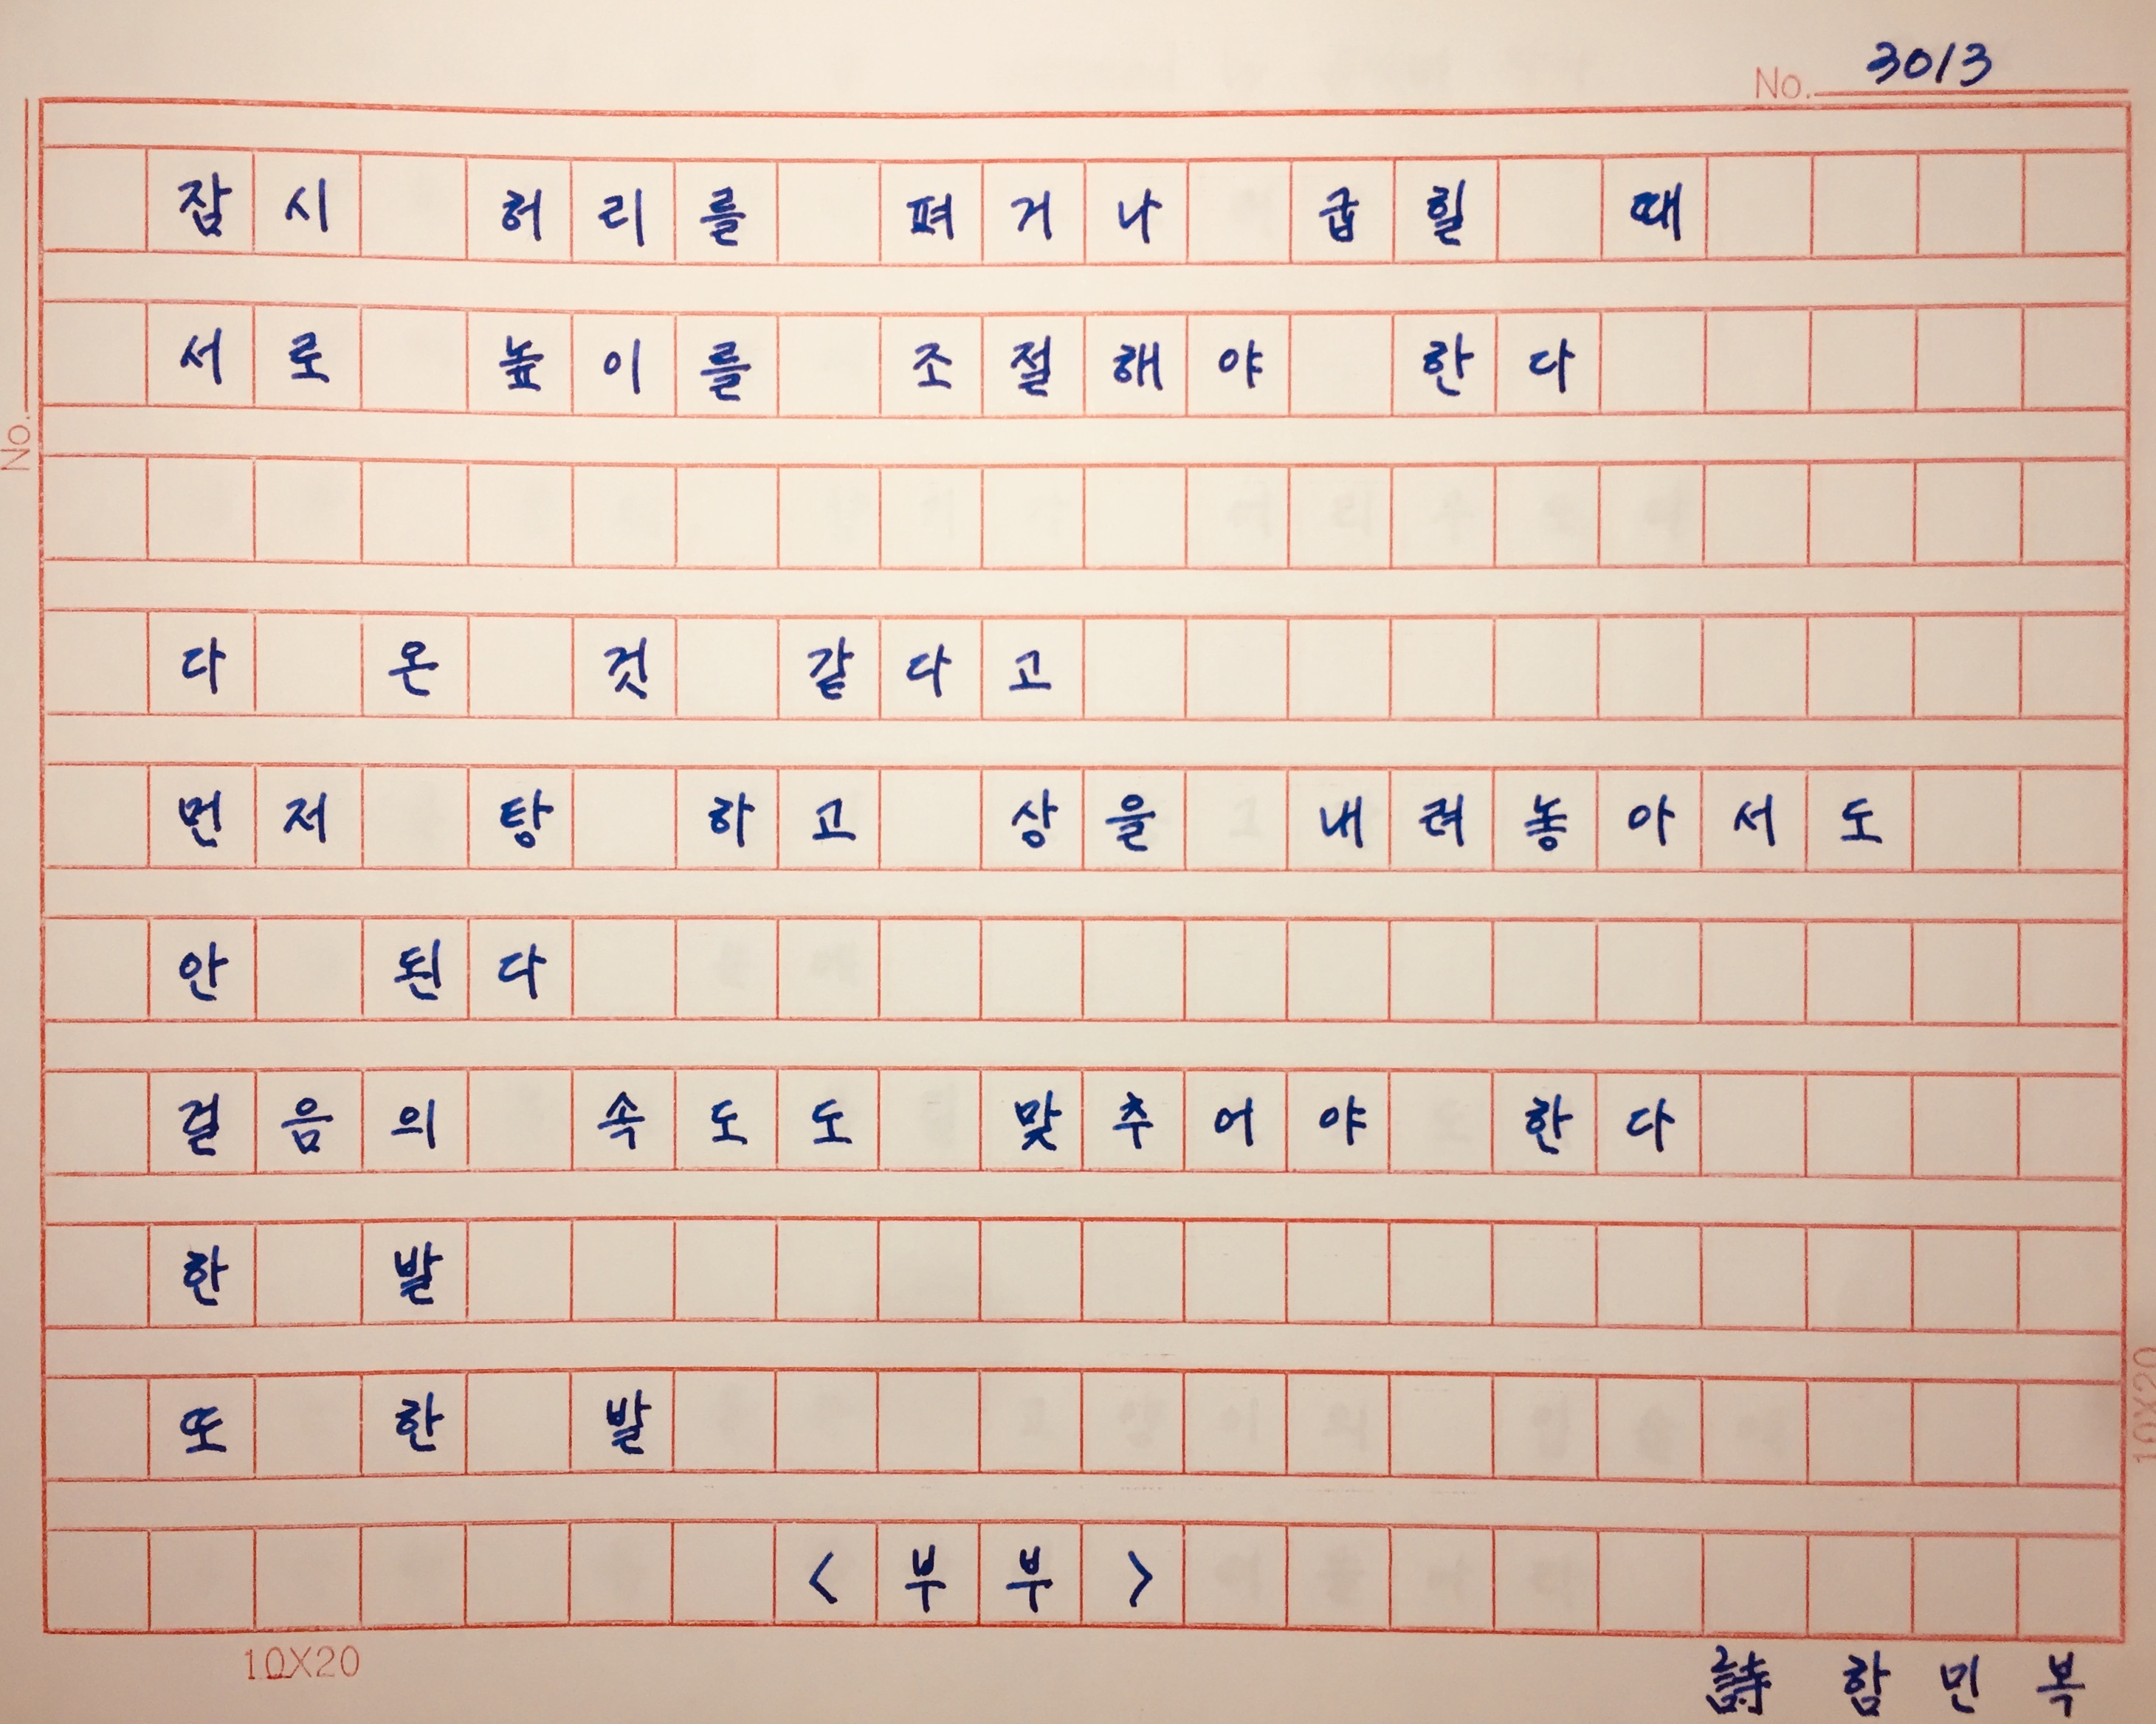 No. 3013
잡시 허리를 펴거나 굽힐 때
서로 높이를 조절해야 한다
다 온 것 같다고
먼저 탕 하고 상을 내려놓아서도
안 된다
걸음의 속도도 맞추어야 한다
한 발
또 한 발
<부부>
10X20
詩 함민복
No.
10X20